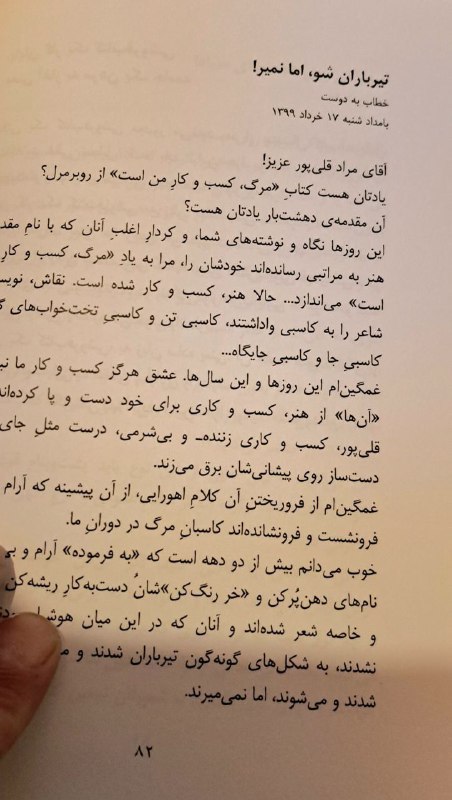 تیرباران شو، اما نمیر!
خطاب به دوست
بامداد شنبه ۱۷ خرداد ۱۳۹۹
آقای مراد قلی‌پور عزیز!
یادتان هست کتابِ «مرگ، کسب و کارِ من است» از روبرمرل؟
آن مقدمه‌ی دهشت‌بار یادتان هست؟
این روزها نگاه و نوشته‌های شما، و کردارِ اغلبِ آنان که با نامِ
هنر به مراتبی رسانده‌اند خودشان را، مرا به یادِ «مرگ، کسب و کارِ
است» می‌اندازد... حالا هنر، کسب و کار شده است. نقاش،
شاعر را به کاسبی واداشتند، کاسبیِ تن و کاسبیِ تخت‌خواب‌های
کاسبیِ جا و کاسبیِ جایگاه...
غمگین‌ام این روزها و این سال‌ها. عشق هرگز کسب و کار ما
«آن‌ها» از هنر، کسب و کاری برای خود دست و پا کرده‌اند
قلی‌پور، کسب و کاری زننده‌ـ و بی‌شرمی، درست مثلِ جای
دست‌ساز روی پیشانی‌شان برق می‌زند.
غمگین‌ام از فروریختنِ آن کلامِ اهورایی، از آن پیشینه که آرام
فرونشست و فرونشانده‌اند کاسبانِ مرگ در دورانِ ما.
خوب می‌دانم بیش از دو دهه است که «به فرموده» آرام و
نام‌های دهن‌پُرکن و «خر رنگ‌کن»شانْ دست‌به‌کارِ
و خاصه شعر شده‌اند و آنان که در این میان
نشدند، به شکل‌های گونه‌گون تیرباران شدند و
شدند و می‌شوند، اما نمی‌میرند.
۸۲